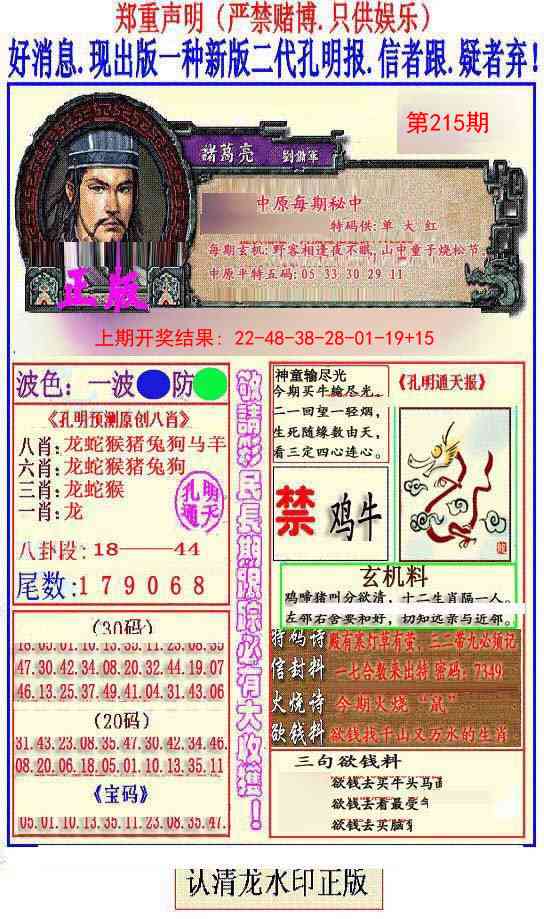 郑重声明（严禁赌博.只供娱乐）
好消息.现出版一种新版二代孔明报.信者跟.疑者弃!
第215期
諸葛亮
中原每期秘中
特码供:单 大 红
每期玄机:野客相逢夜不眠,山中童子烧松节.
中原平特五码:05 33 30 29 11
正版
上期开奖结果：22-48-38-28-01-19+15
波色：一波 防
《孔明预测原创八肖》
八肖:龙蛇猴猪兔狗马羊
六肖:龙蛇猴猪兔狗
三肖:龙蛇猴
一肖:龙
孔明
通天
八卦段：18——44
尾数:179068
(30码)
18.05.01.10.13.35.11.23.08.35
47.30.42.34.08.20.32.44.19.07
46.13.25.37.49.41.04.31.43.06
(20码)
31.43.23.08.35.47.30.42.34.46.
08.20.06.18.05.01.10.13.35.11
《宝码》
05.01.10.13.35.11.23.08.35.47.
敬請彩民長期跟踪必有大收獲！
神童输尽光
今期买牛输尽光。
二一回望一轻烟，
生死随缘数由天，
看三定四心连心。
《孔明通天报》
禁 鸡牛
玄机料
鸡啼猪叫分欲清，十二生肖隔一人。
左邻右舍要和好，切知远亲与近邻。
特码诗 殿有寒灯草有萤，三二带九必须记
信封料 一七合数乘出特 密码：7349
火烧诗 今期火烧“鼠”
欲钱料 欲钱找千山又万水的生肖
三句欲钱料
欲钱去买牛头马面
欲钱去看最受
欲钱去买脑
认清龙水印正版